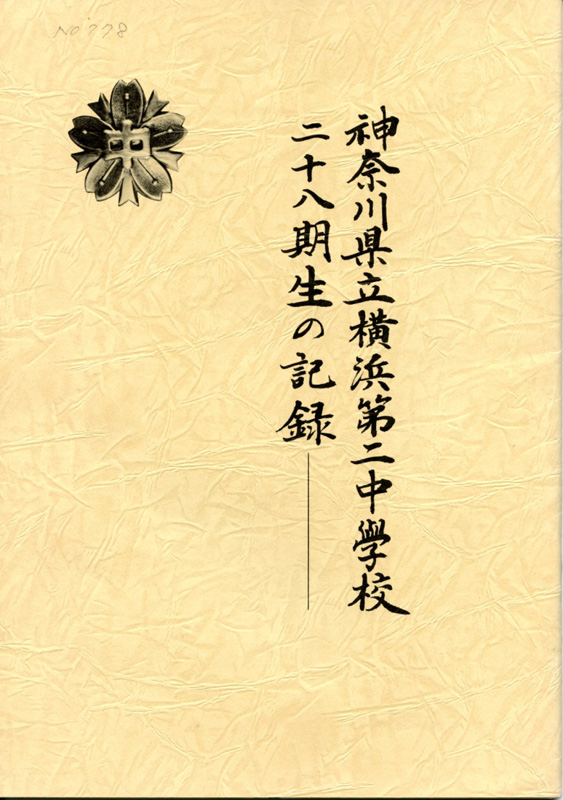 NO 778
神奈川県立横浜第二中學校
二十八期生の記録――
中